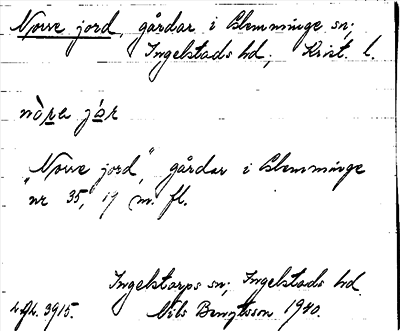 Norre jord, gårdar i Blemminge sn;
Ingelstads hd; Krist. l.
nòra jár
"Norre jord", gårdar i Blemminge
"nr 35", 19 m. fl.
Ingelstorps sn; Ingelstads hd.
3915. Nils Bengtsson 1940.